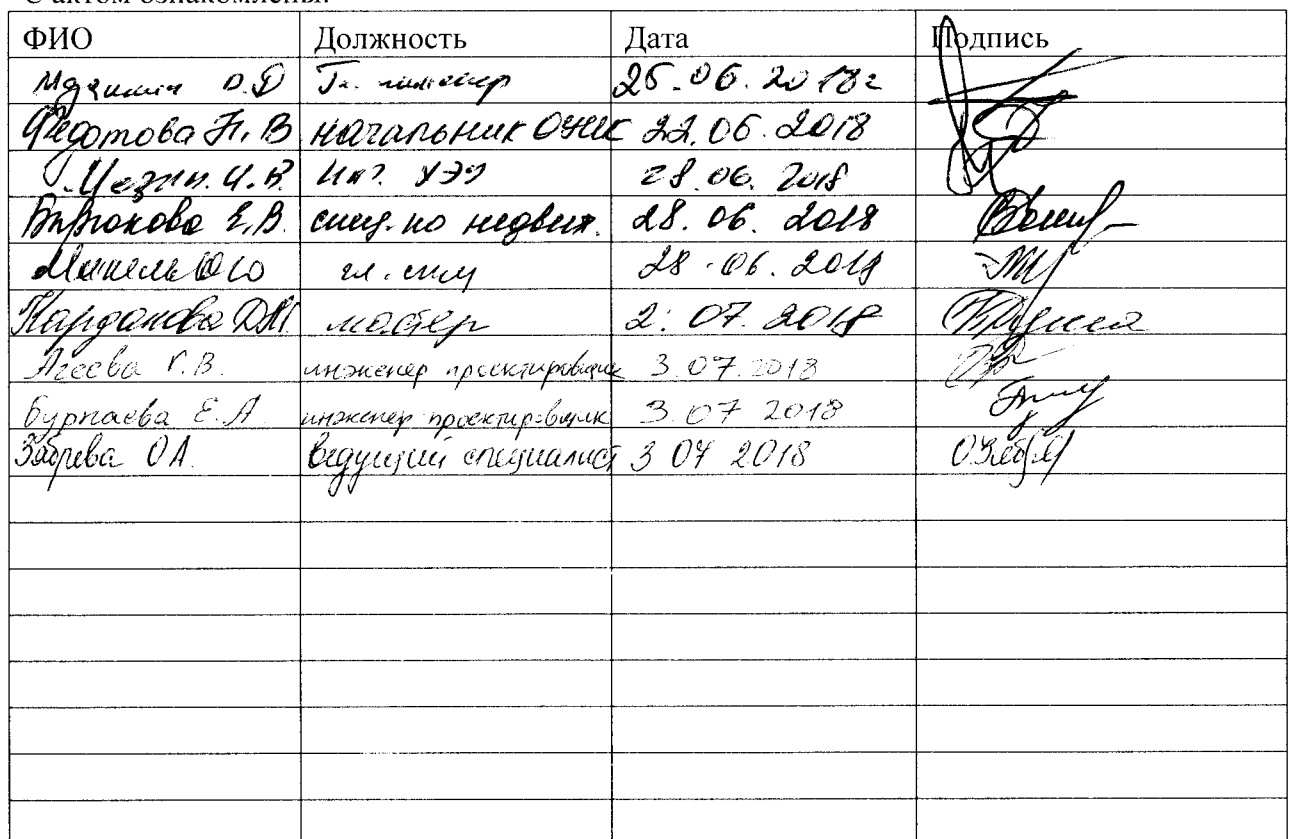 С актом ознакомлены:
ФИО Должность Дата Подпись
О.Д Гл. инженер 25.06.2018г
Федотова Н.В начальник 22.06.2018
И.В. Инж. УЭЭ 28.06.2018
Бирюкова Е.В. спец. по недвиж. 28.06.2018
гл. спец 28.06.2018
Карданова мастер 2.07.2018
Агеева Г.В. инженер проектировщик 3.07.2018
Бурпаева Е.А инженер-проектировщик 3.07 2018
О.А. ведущий специалист 3 07 2018